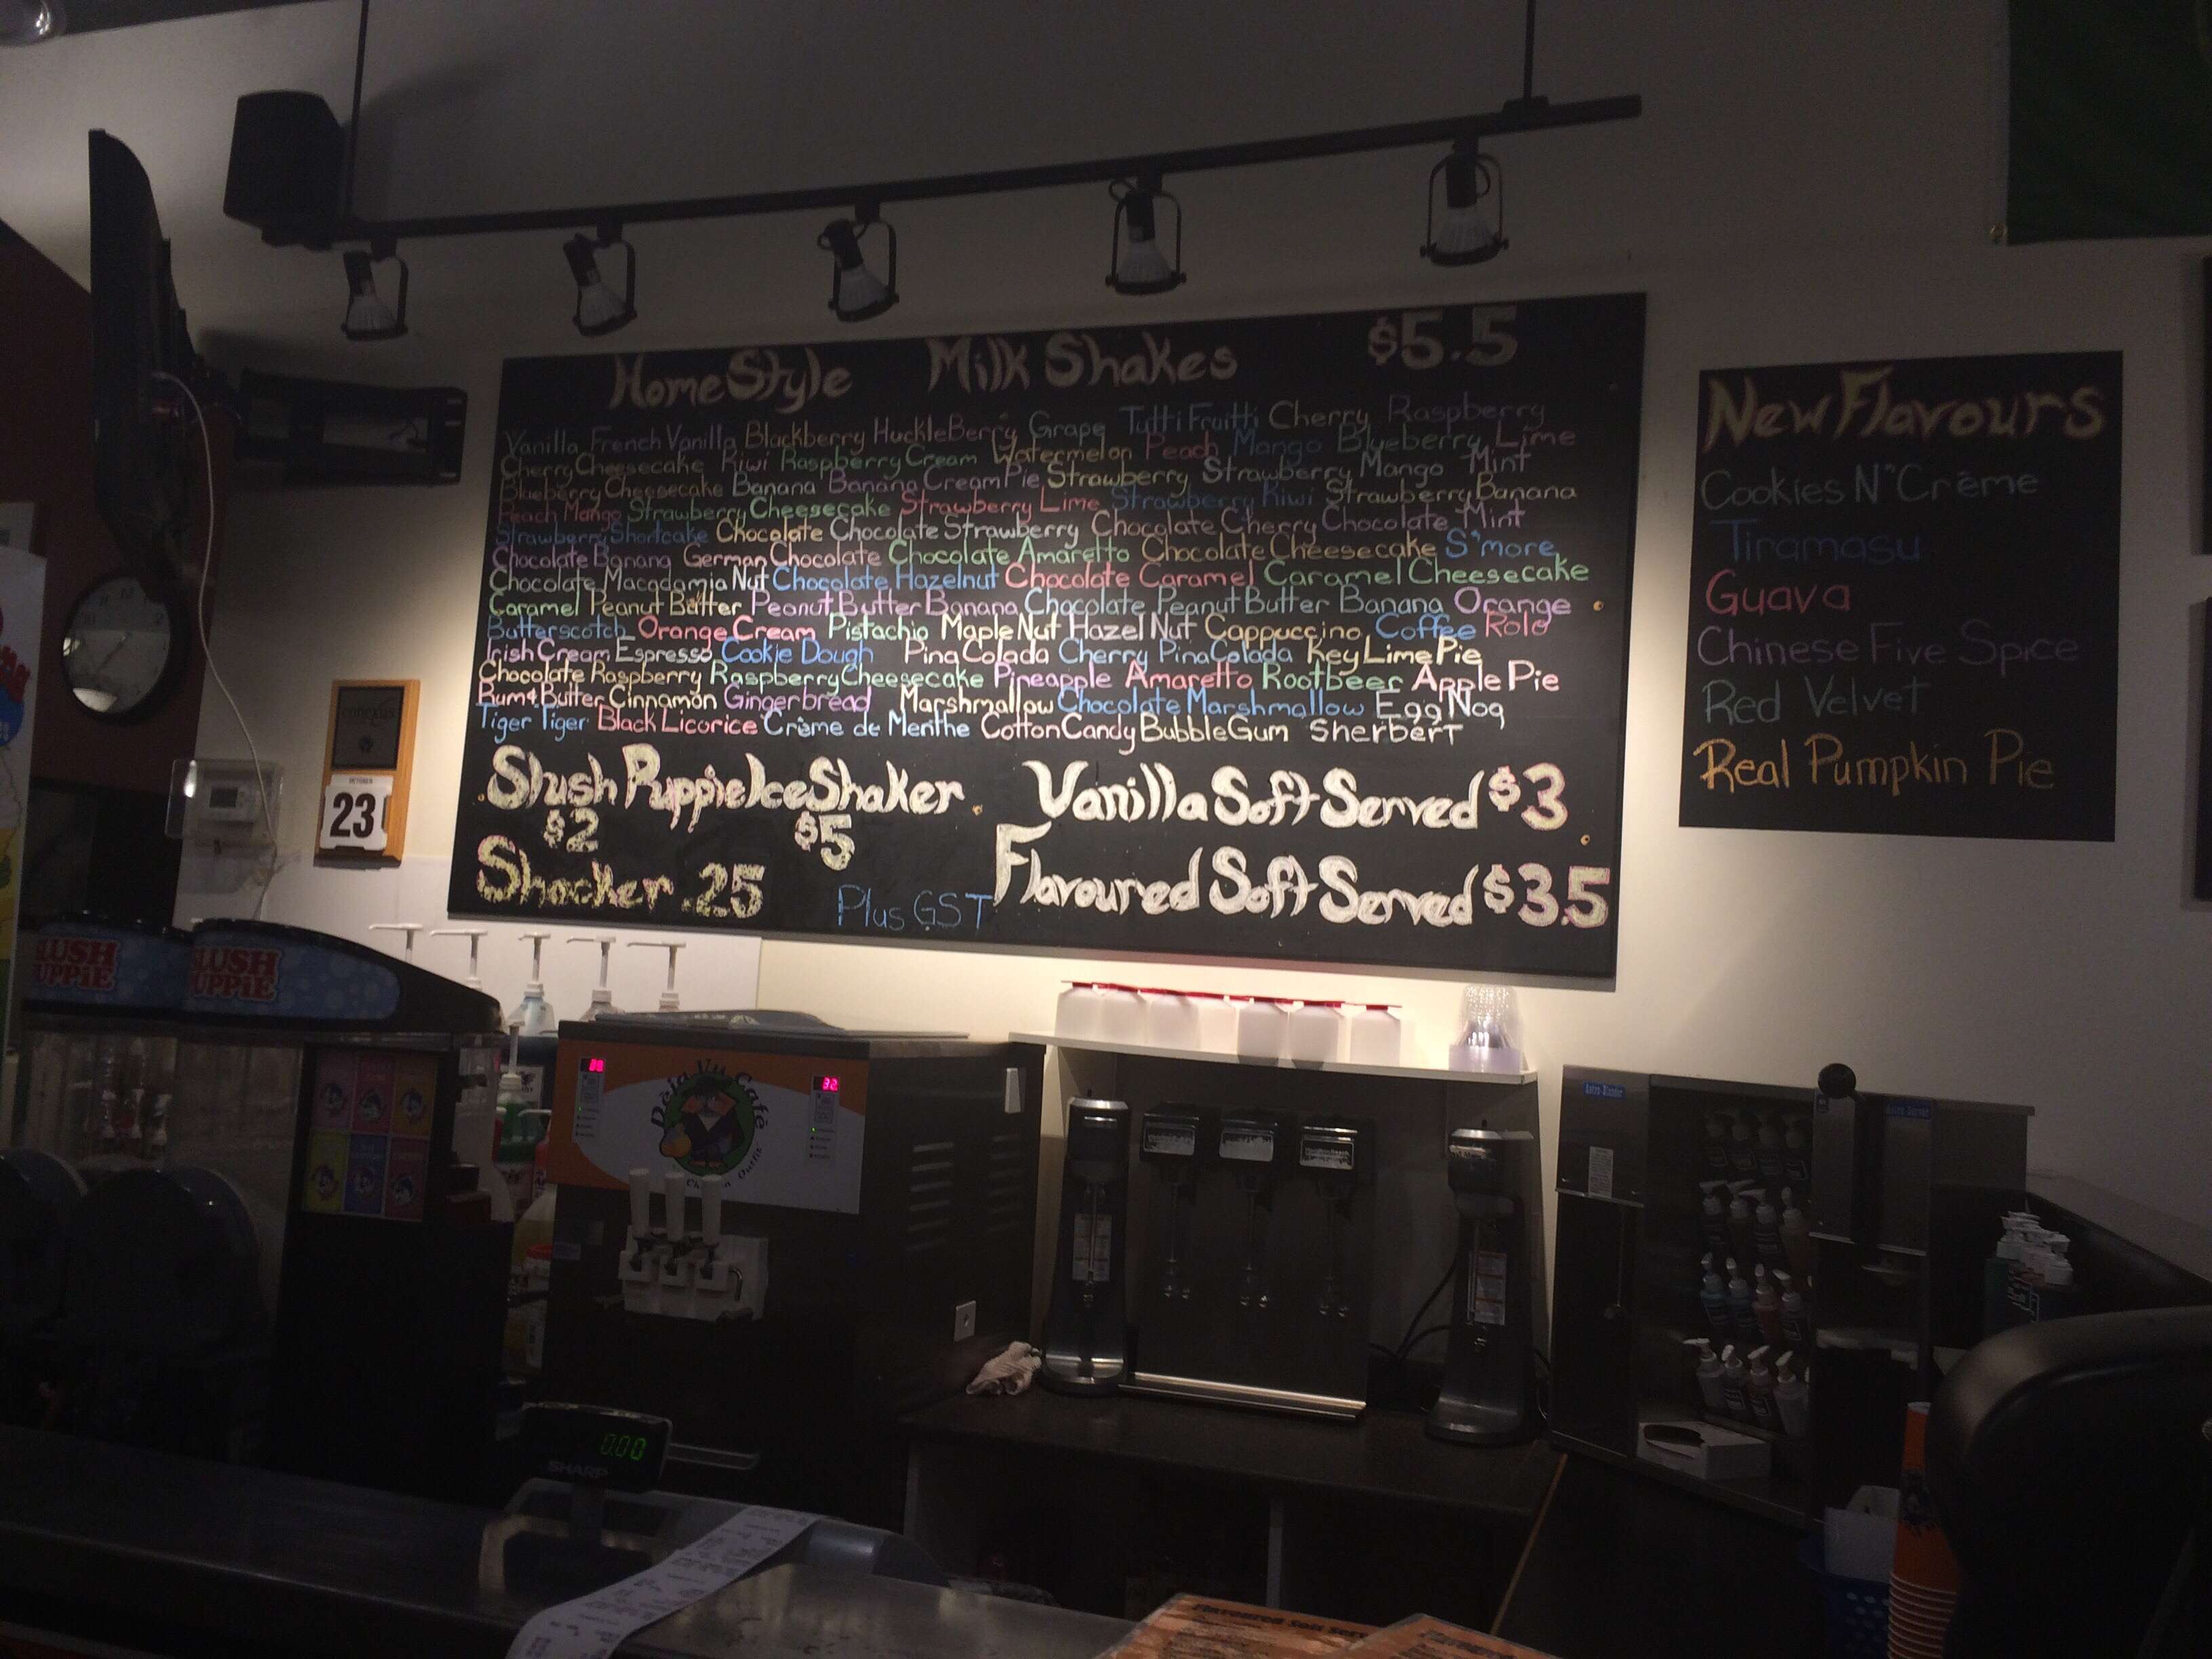 HomeStyle Milk Shakes $5.5
Vanilla French Vanilla Blackberry HuckleBerry Grape Tutti Fruitti Cherry Raspberry
CherryCheesecake Kiwi Raspberry Cream Watermelon Peach Mango Blueberry Lime
Blueberry Cheesecake Banana Banana CreamPie Strawberry Strawberry Mango Mint
Peach Mango Strawberry Cheesecake Strawberry Lime Strawberry Kiwi Strawberry Banana
Strawberry Shortcake Chocolate Chocolate Strawberry Chocolate Cherry Chocolate Mint
Chocolate Banana German Chocolate Chocolate Amaretto Chocolate Cheesecake S'more
Chocolate Macadamia Nut Chocolate Hazelnut Chocolate Caramel Caramel Cheesecake
Caramel Peanut Butter Peanut Butter Banana Chocolate Peanut Butter Banana Orange
Butterscotch Orange Cream Pistachio Maple Nut Hazel Nut Cappuccino Coffee Rolo
Irish Cream Espresso Cookie Dough Pina Colada Cherry Pina Colada Key Lime Pie
Chocolate Raspberry Raspberry Cheesecake Pineapple Amaretto Rootbeer Apple Pie
Rum & Butter Cinnamon Gingerbread Marshmallow Chocolate Marshmallow Egg Nog
Tiger Tiger Black Licorice Crème de Menthe Cotton Candy Bubble Gum Sherbert
Slush Puppie Ice Shaker Vanilla Soft Served $3
$2 $5
Shocker .25 Plus GST Flavoured Soft Served $3.5
New Flavours
Cookies N" Crème
Tiramasu
Guava
Chinese Five Spice
Red Velvet
Real Pumpkin Pie
OCTOBER
23
SLUSH PUPPiE
SLUSH PUPPiE
Déja Vu Café
Outfit
32
0.00
SHARP
Astro-Blender
Flavoured Soft Serv